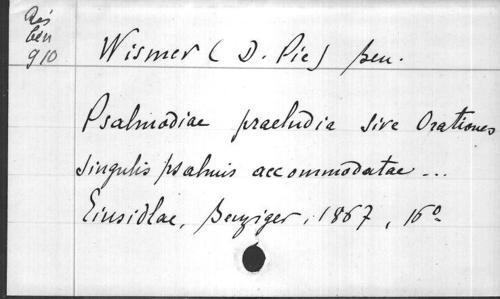 Rés
ben
910
Wismer ( D. Pie) ben.
Psalmodiae praeludia sive Orationes
singulis psalmis accommodatae ...
Einsidlae, Benziger, 1867, 16º